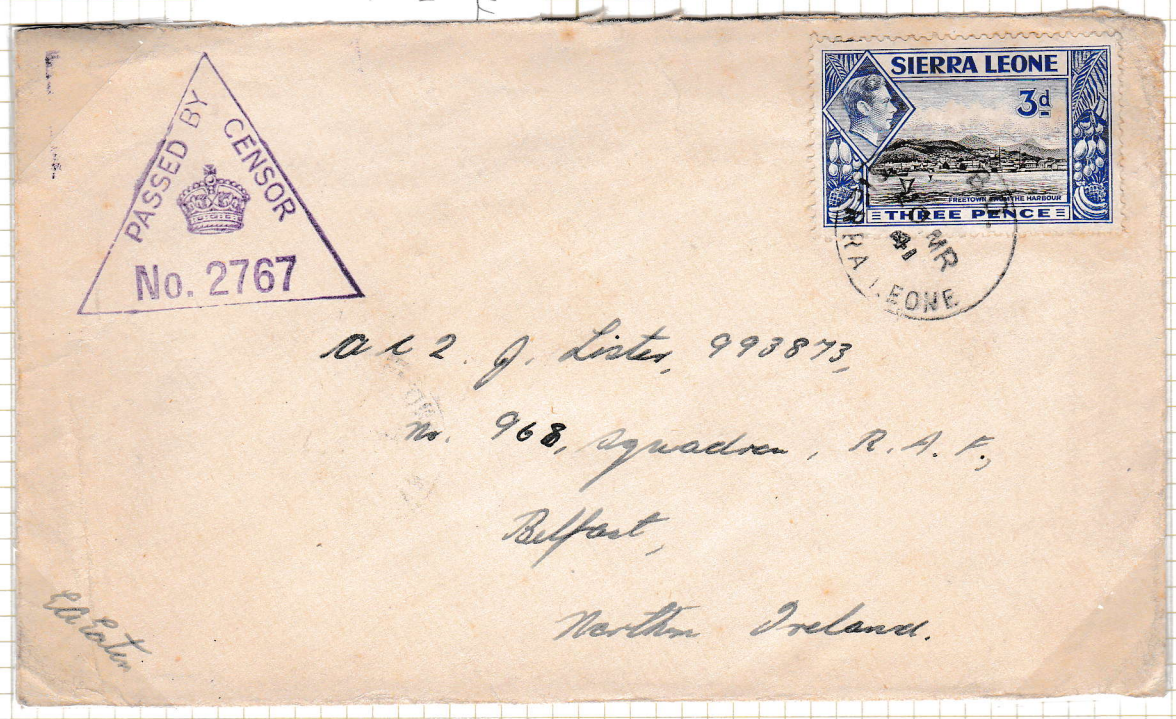 PASSED BY CENSOR
No. 2767
SIERRA LEONE
3d
FREETOWN FROM THE HARBOUR
THREE PENCE
MR
41
SIERRA LEONE
AC2. J. Lister, 993873,
No. 968, Squadron, R.A.F.,
Belfast,
Northern Ireland.